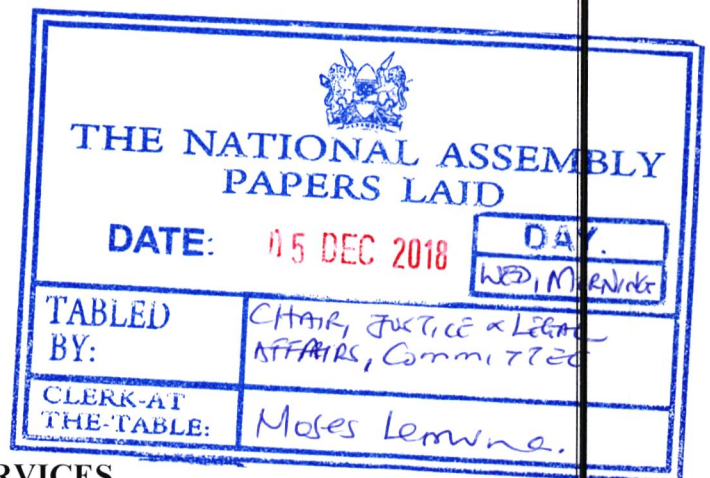 THE NATIONAL ASSEMBLY
PAPERS LAID
DATE: 05 DEC 2018
DAY.
WED, MORNING
TABLED BY:
CHAIR, JUSTICE & LEGAL
AFFAIRS, COMMITTEE
CLERK-AT THE-TABLE:
Moses
RVICES